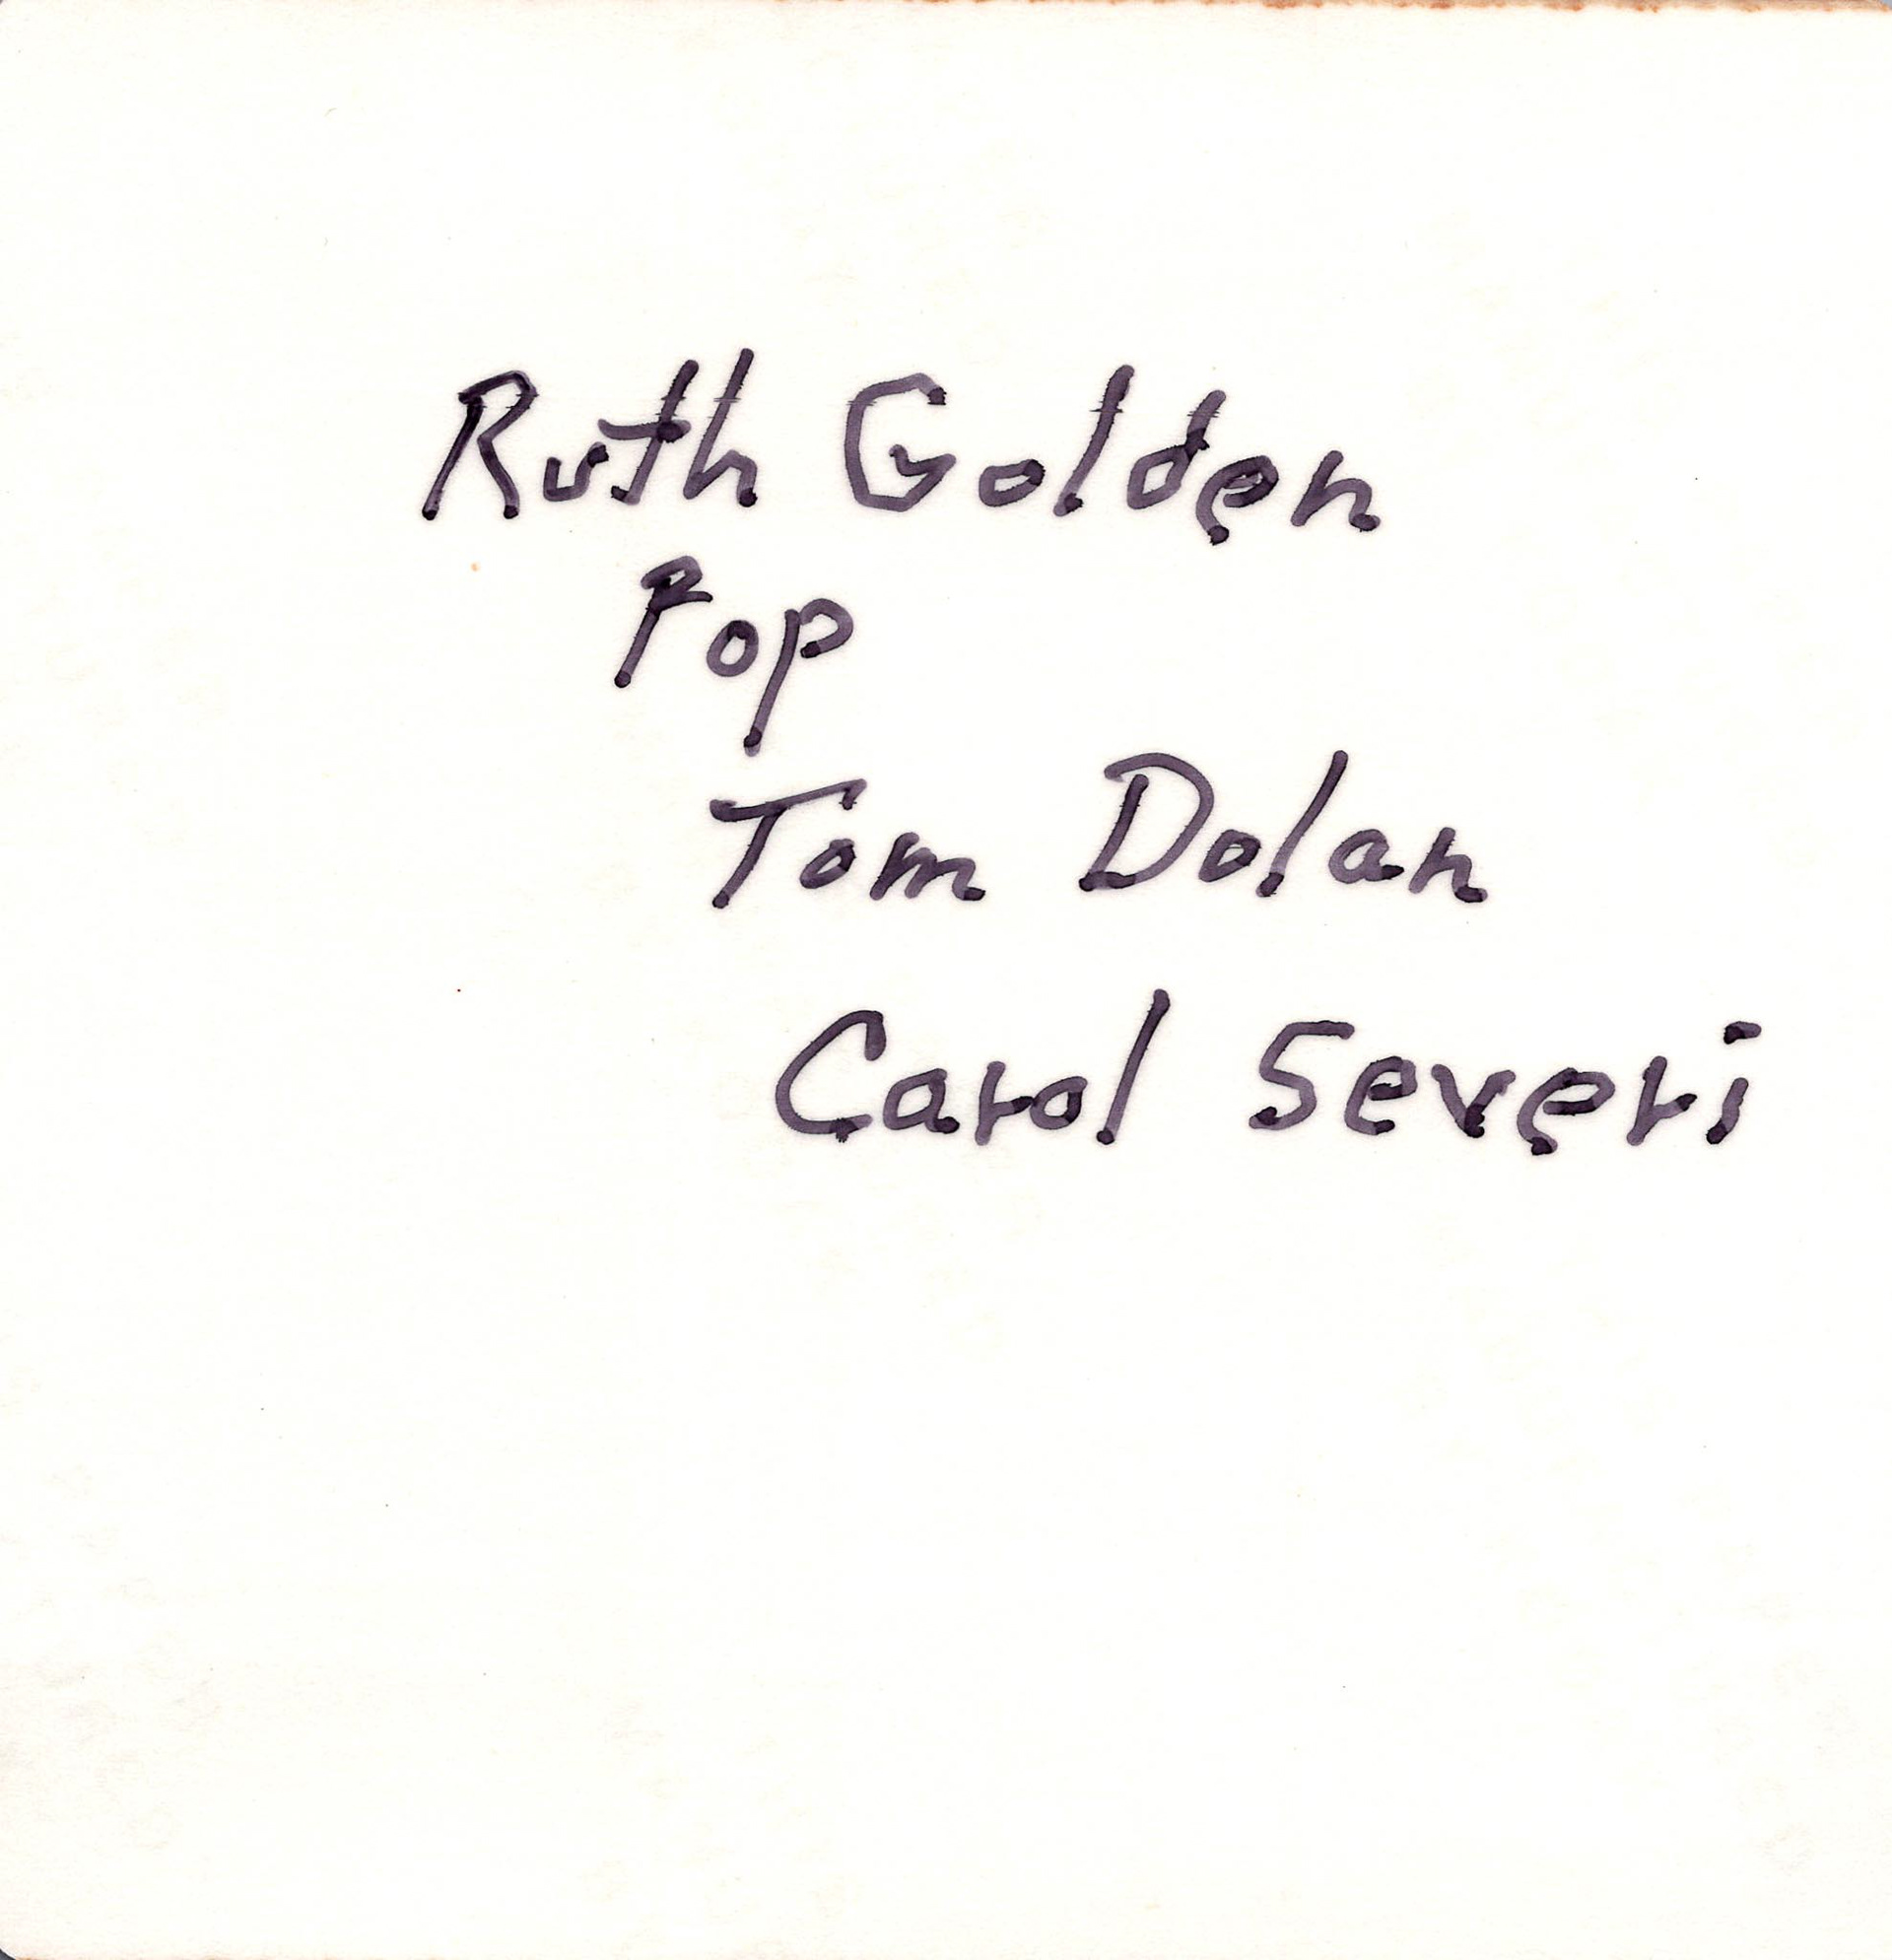 Ruth Golden
Pop
Tom Dolan
Carol Severi